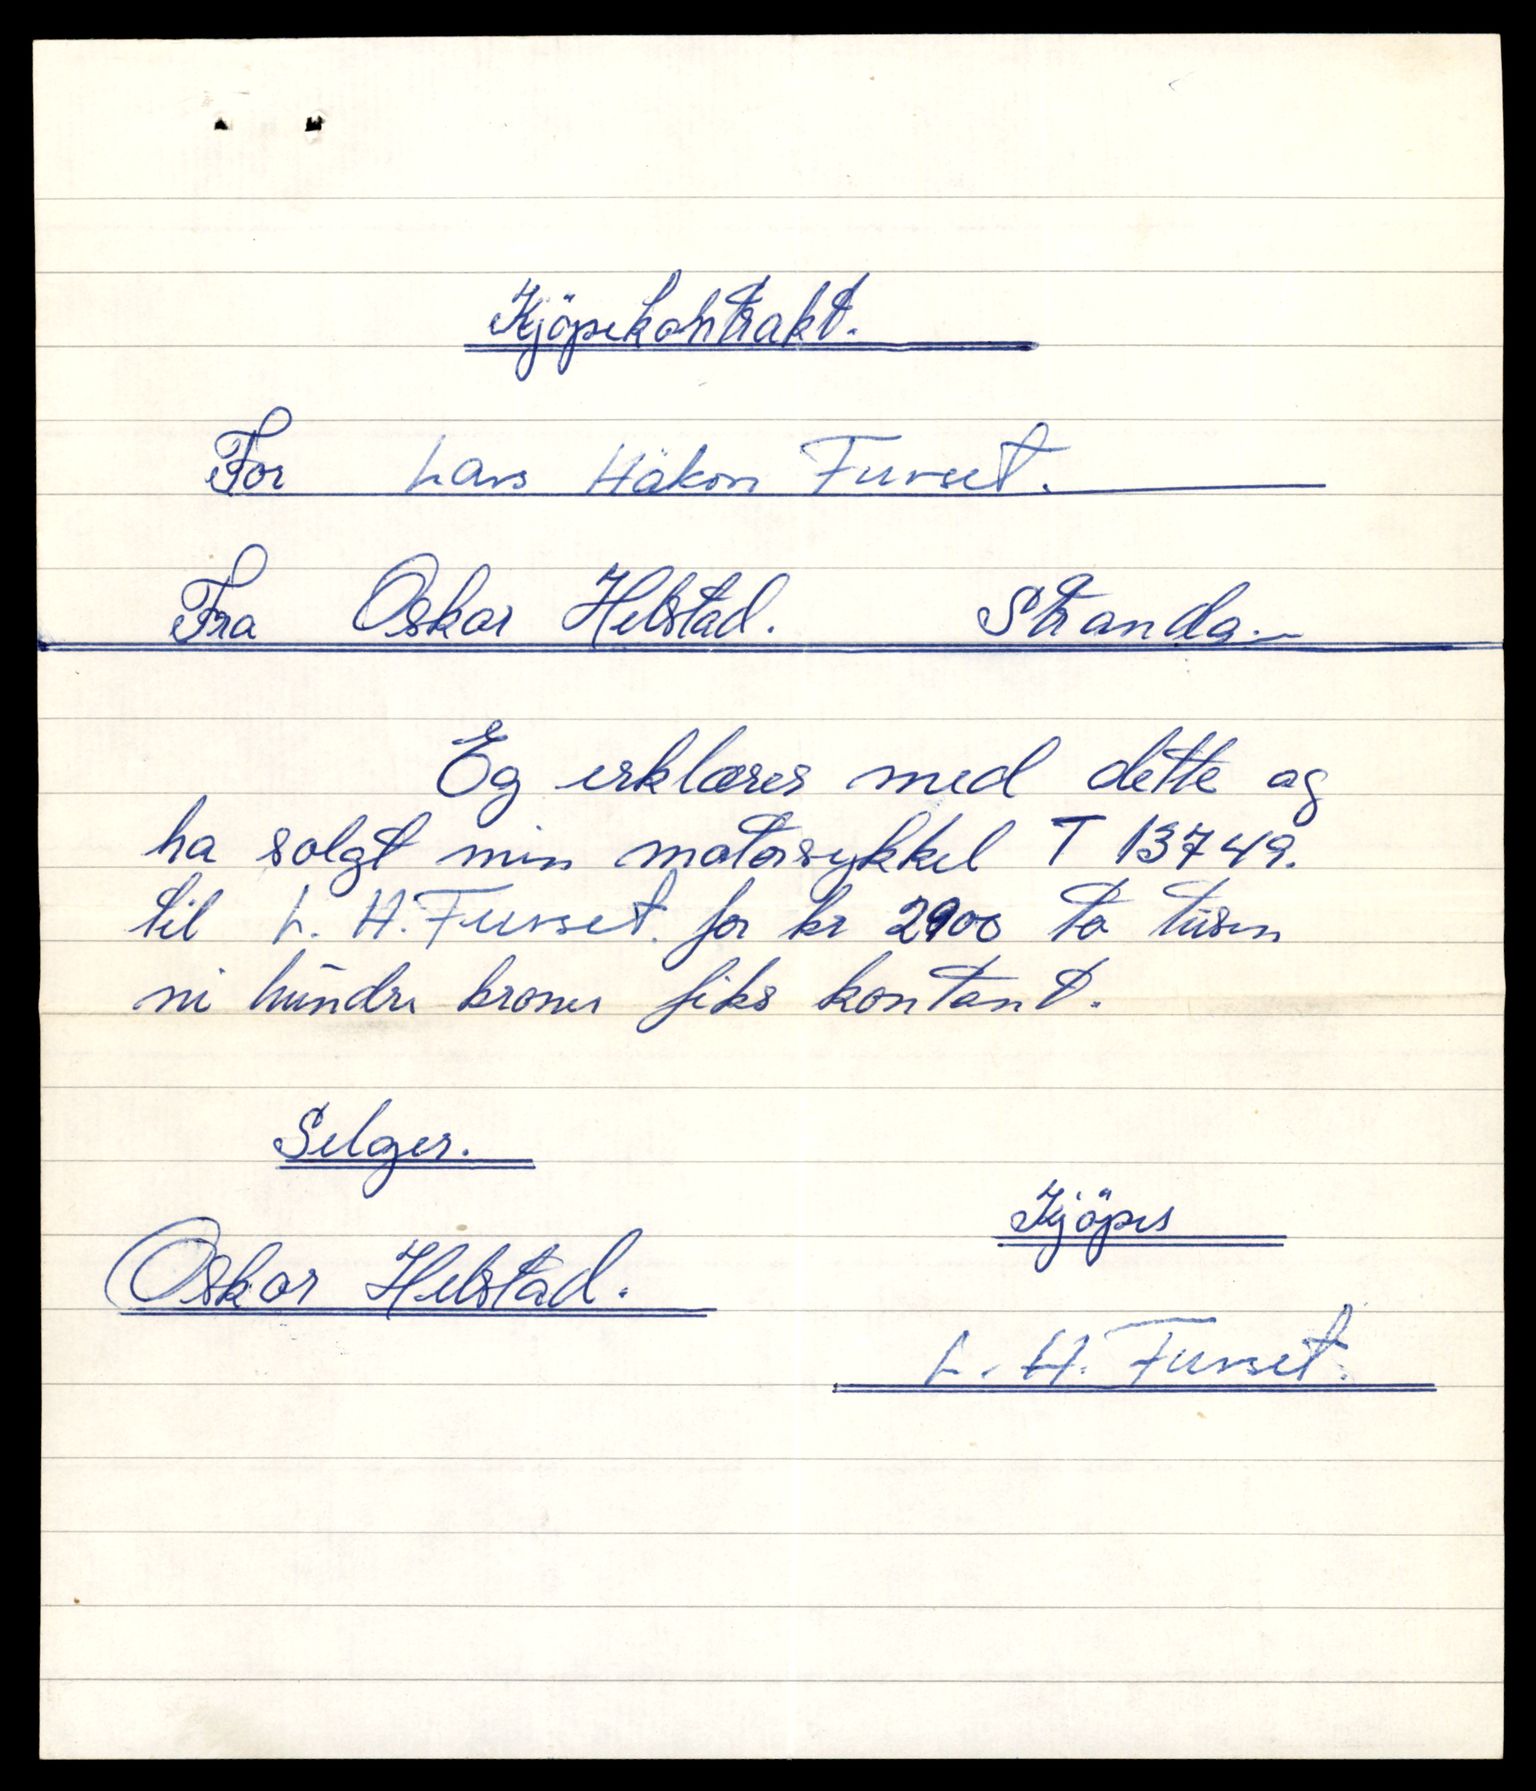 Kjöpekontrakt.
For Lars Håkon Furset.
Fra Oskar Helstad. Stranda.
Eg erklærer med dette og
ha solgt min motorsykkel T 13749.
til L. H. Furset. for kr 2900 to tusen
ni hundre kroner fiks kontant.
Selger.
Kjöper
Oskar Helstad.
L. H. Furset.